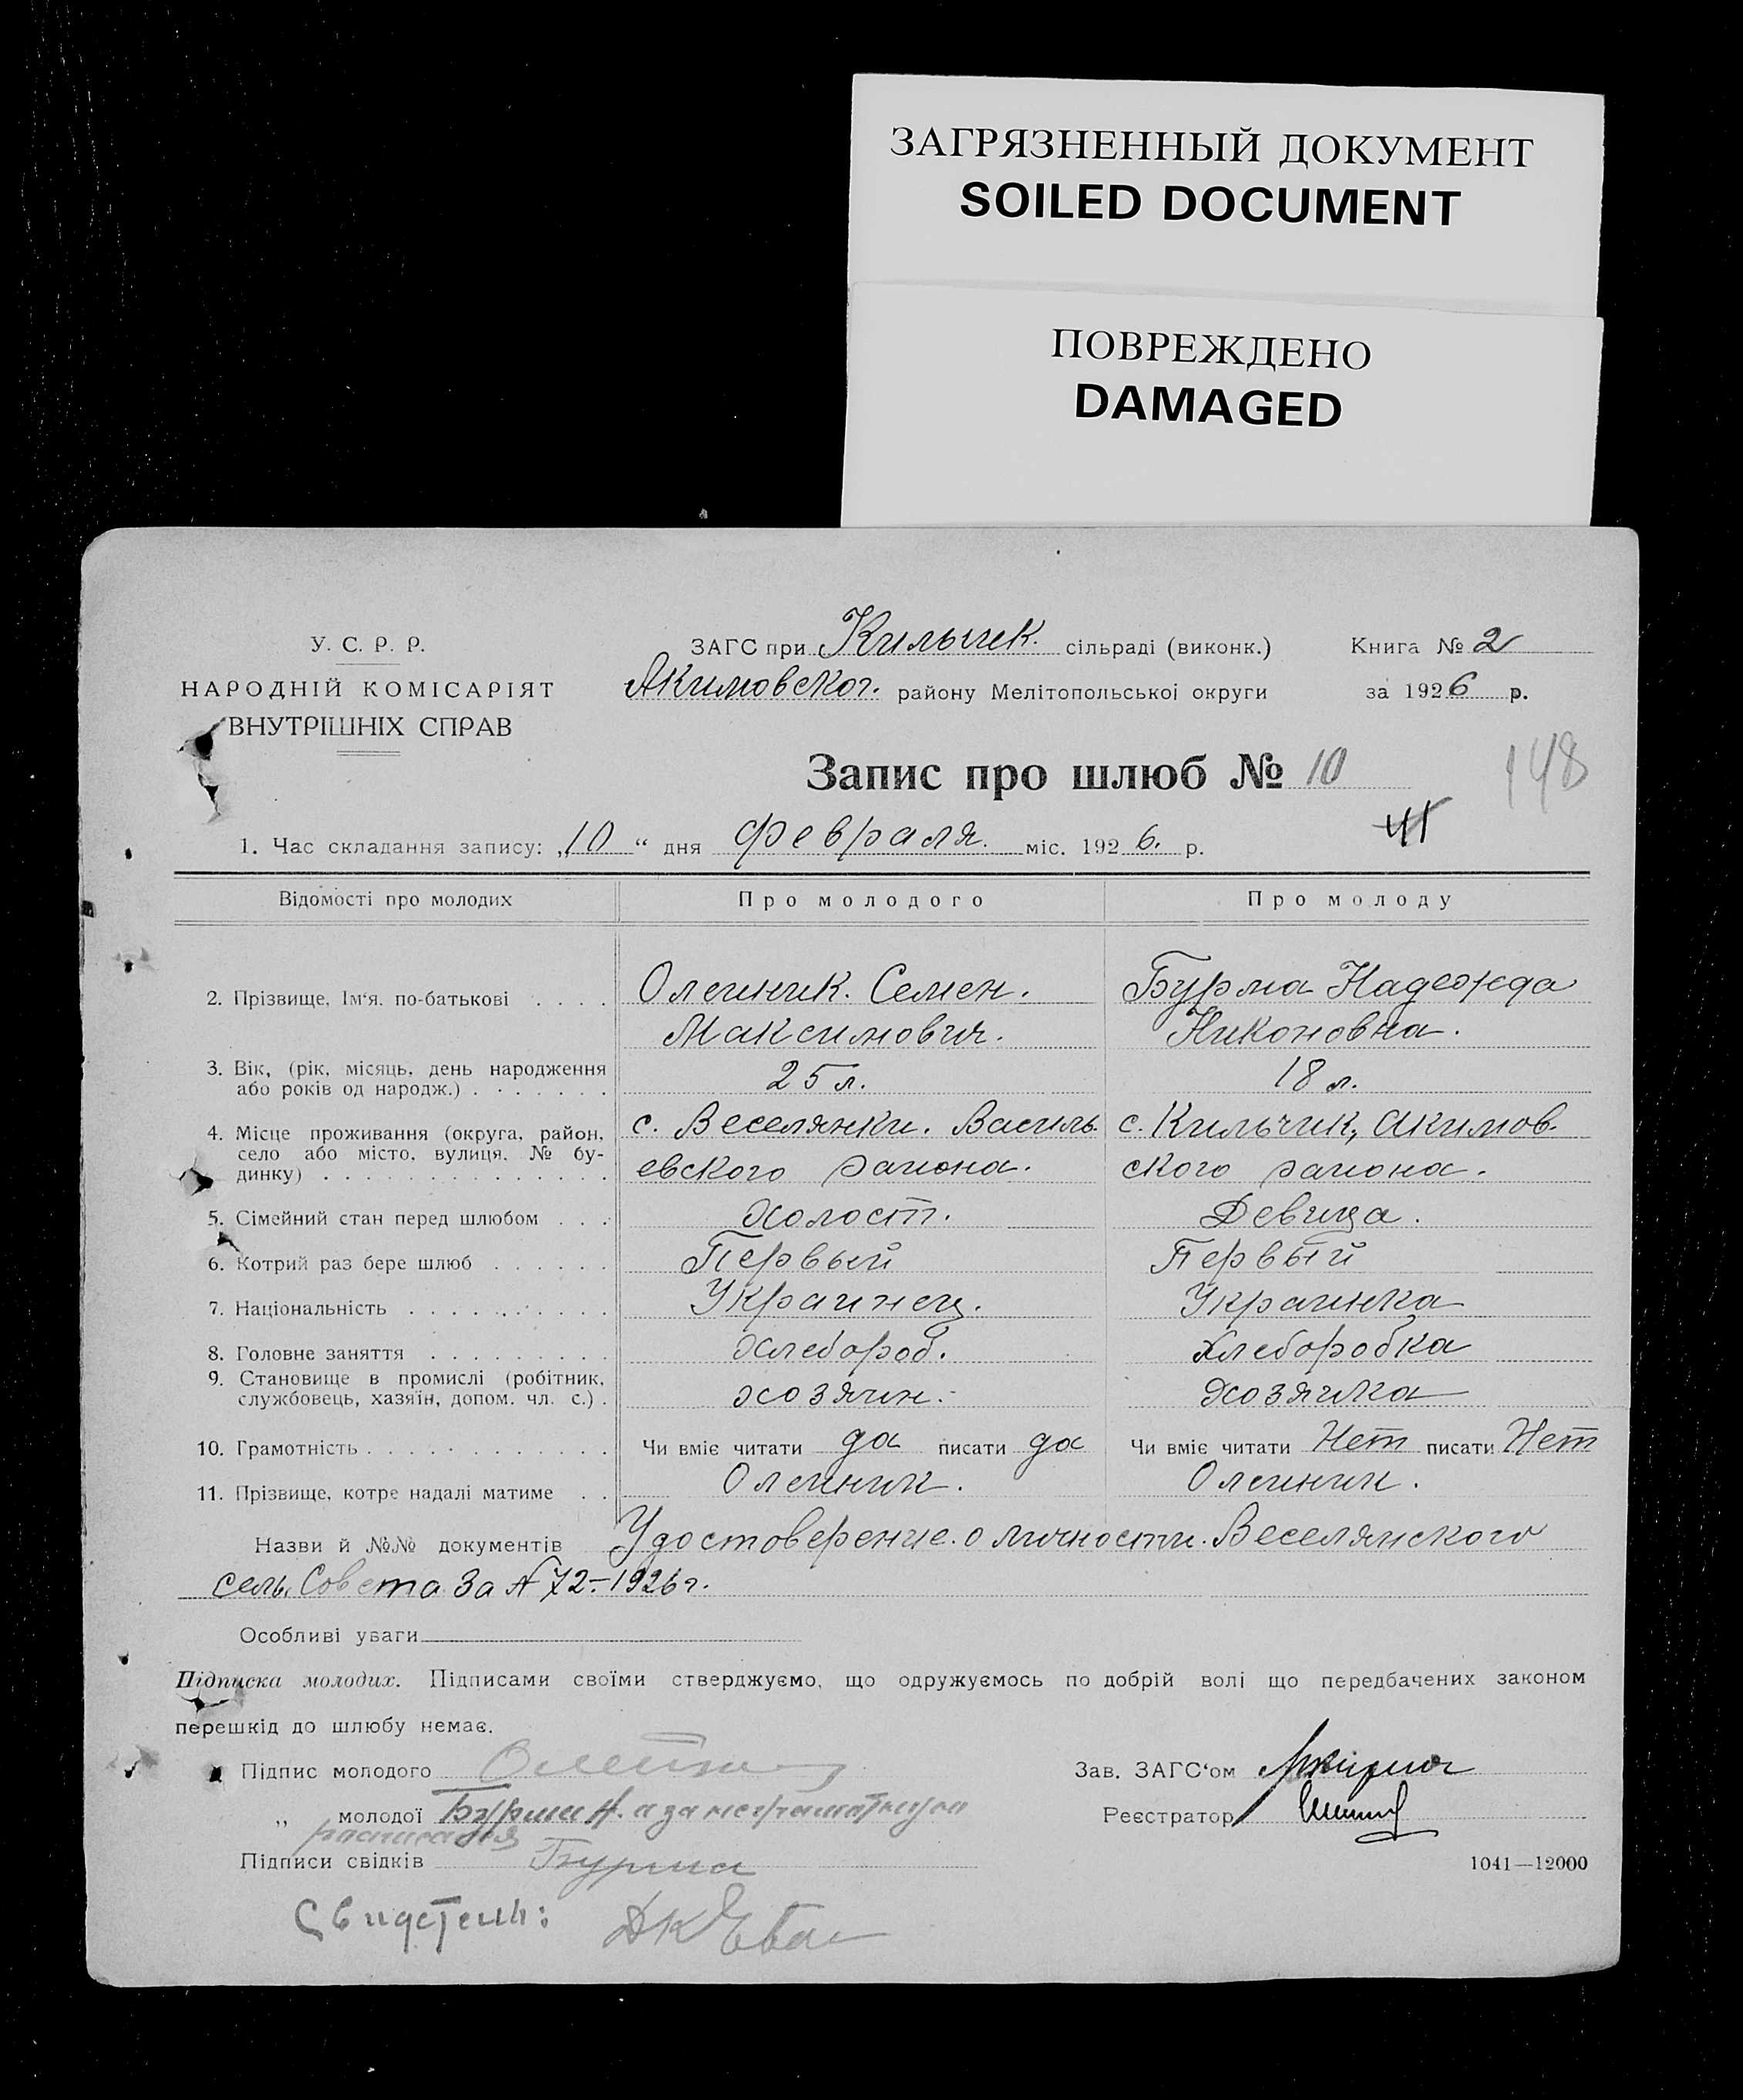 ЗАГРЯЗНЕННЫЙ ДОКУМЕНТ
SOILED DOCUMENT
ПОВРЕЖДЕНО
DAMAGED
У. С. Р. Р.
НАРОДНІЙ КОМІСАРІЯТ
ВНУТРІШНІХ СПРАВ
ЗАГС при Кильчик. сільраді (виконк.)
Акимовског. району Мелітопольської округи
Книга № 2
за 1926 р.
Запис про шлюб № 10
148
41
1. Час складання запису: „10“ дня февраля. міс. 1926. р.
Відомості про молодих Про молодого Про молоду
2. Прізвище, Ім'я, по-батькові . . . . Олейник. Семен. Бурма Надежда
Максимович. Никоновна.
3. Вік, (рік, місяць, день народження
або років од народж.) . . . . . . . 25 л. 18 л.
4. Місце проживання (округа, район, с. Веселянки. Василь- с. Кильчик, Акимов-
село або місто, вулиця, № бу-
динку) . . . . . . . . . . . . . . евского района. ского района.
5. Сімейний стан перед шлюбом . . . холост. Девица.
6. Котрий раз бере шлюб . . . . . . Первый Первый
7. Національність . . . . . . . . . . Украинец. Украинка
8. Головне заняття . . . . . . . . . хлебороб. хлеборобка
9. Становище в промислі (робітник,
службовець, хазяїн, допом. чл. с.) . хозяин. хозяйка
10. Грамотність . . . . . . . . . . . . Чи вміє читати да писати да Чи вміє читати Нет писати Нет
11. Прізвище, котре надалі матиме . . Олейник. Олейник.
Назви й №№ документів Удостоверение. о личности. Веселянского
сель. Совета За № 72.-1926 г.
Особливі уваги
Підписка молодих. Підписами своїми стверджуємо, що одружуємось по добрій волі що передбачених законом
перешкід до шлюбу немає.
Підпис молодого Олейник
Зав. ЗАГС'ом
„ молодої Бурма Н. а за неграматную
Реєстратор
расписался
Підписи свідків Бурма
1041—12000
Свидетели: